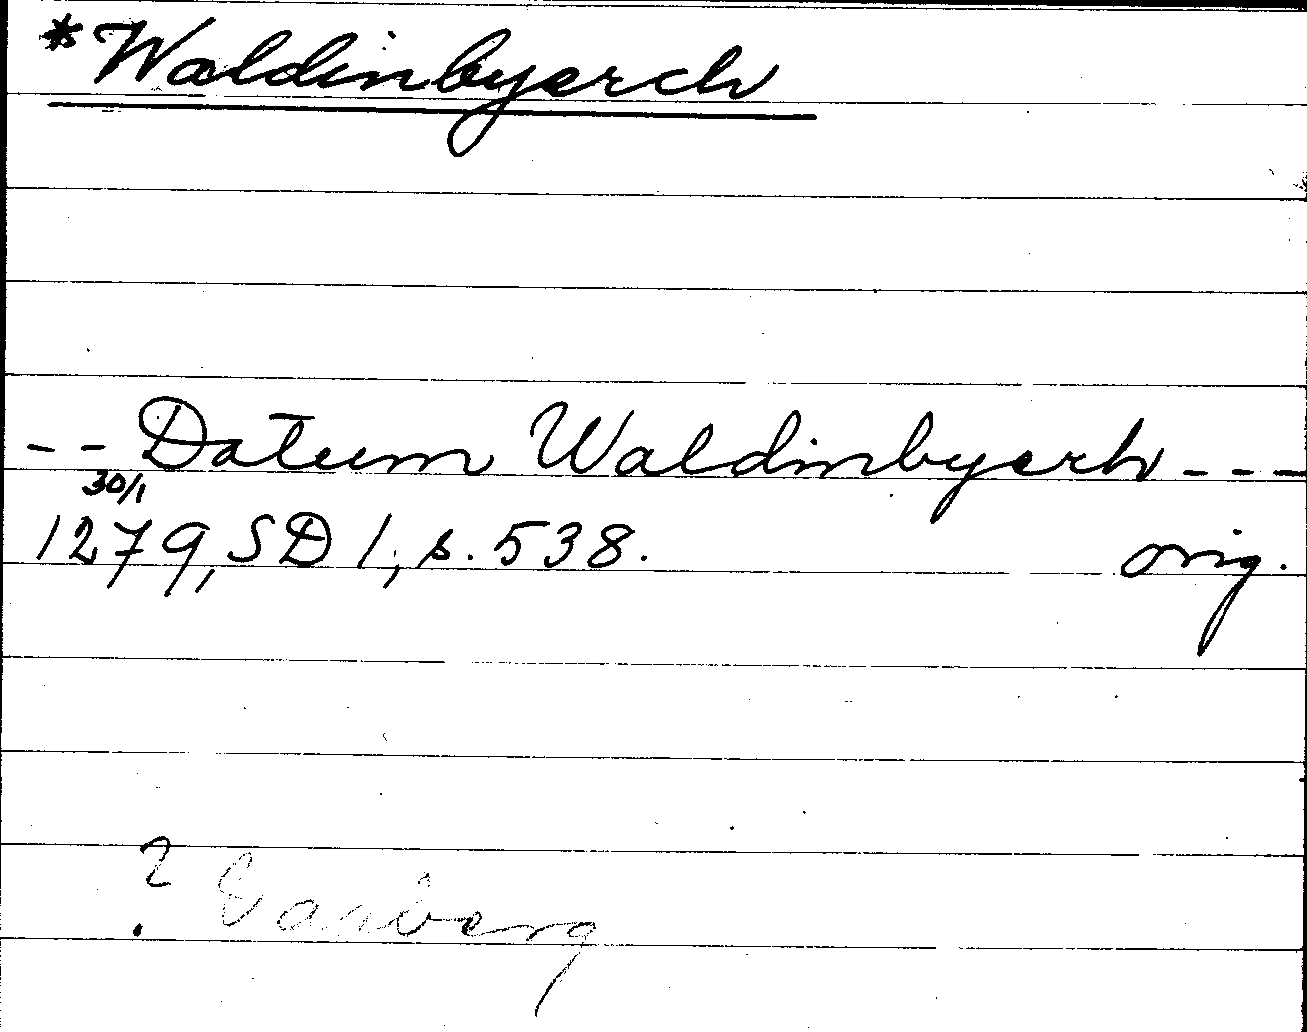 *Waldinbyerch
- - Datum Waldinbyerch - - -
30/1
1279, SD 1, s. 538. orig.
?